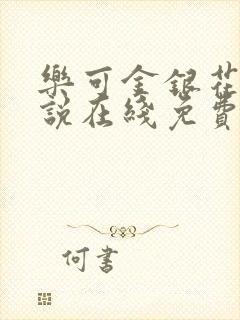 樂可金銀花
說在綫免費
何書